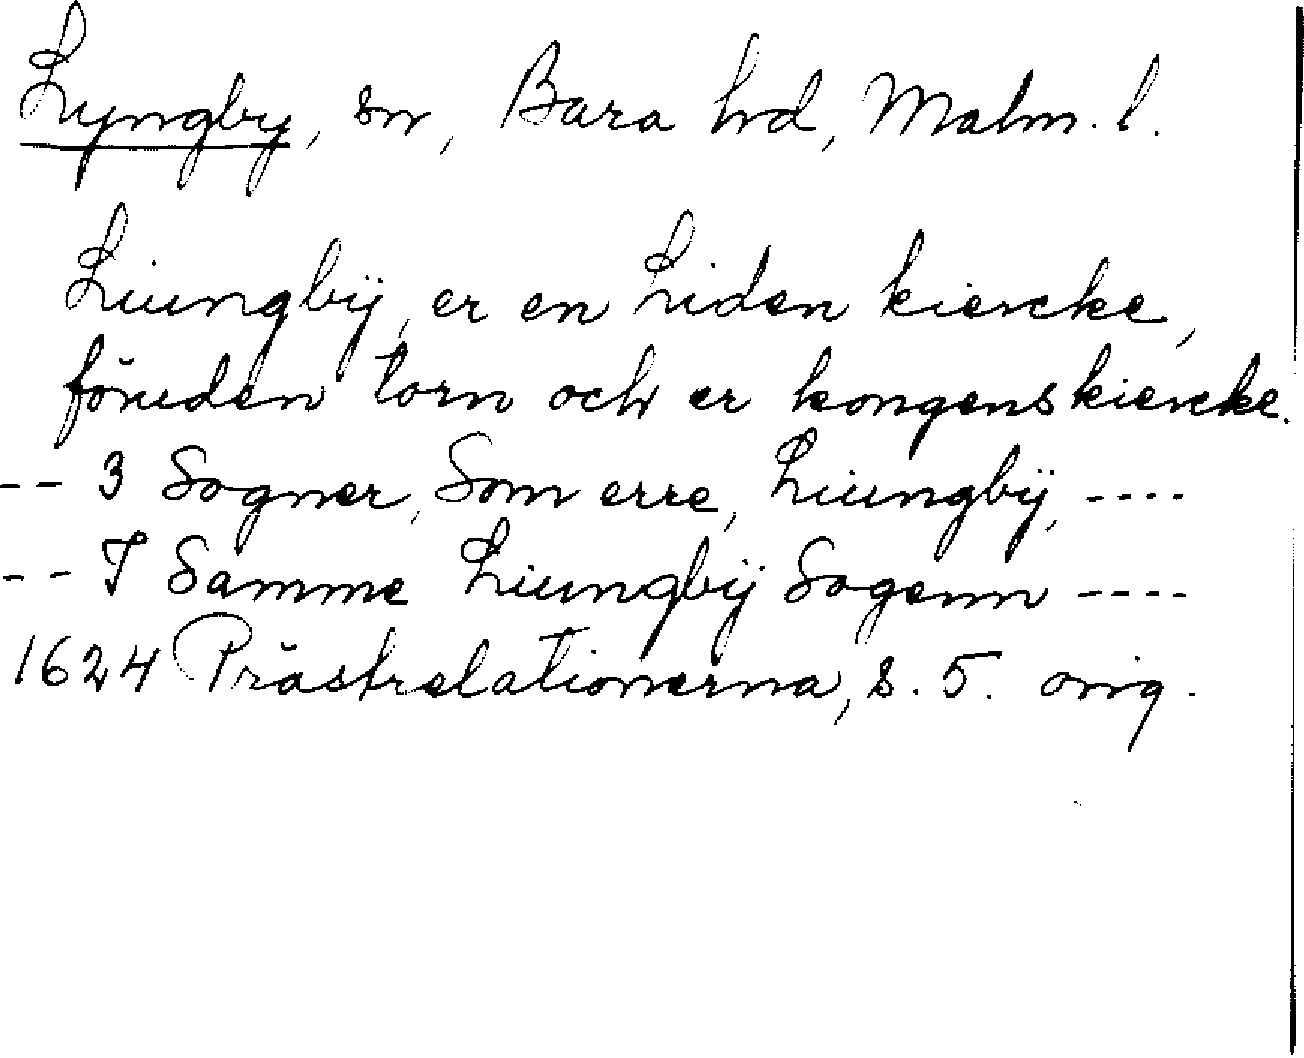 Lyngby, sn, Bara hd, Malm. l.
Liungbÿ, er en Liden kiercke,
föruden torn och er kongens kiercke.
-- 3 Sogner, Som erre, Liungbÿ, ----
-- I Samme Liungbÿ Sogenn ----
1624 Prästrelationerna, s. 5. orig.